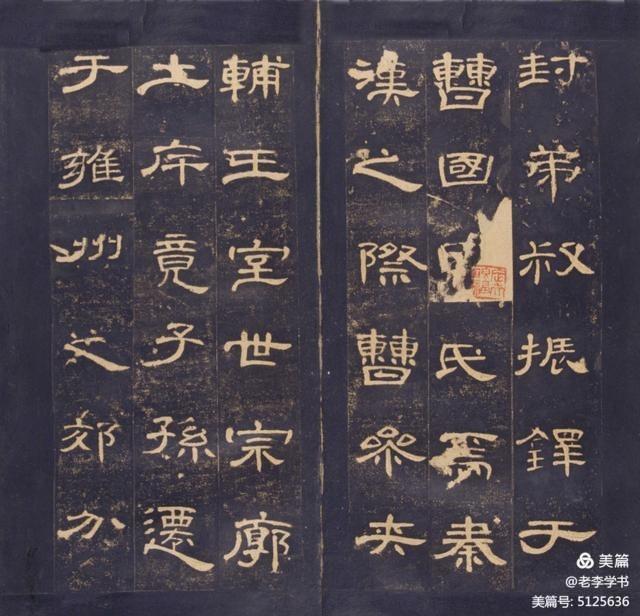 封弟叔振鐸于
曹國氏焉秦
漢之際曹參夾
輔王室世宗廓
土斥竟子孫遷
于雍州之郊分
美篇
@老李学书
美篇号: 5125636